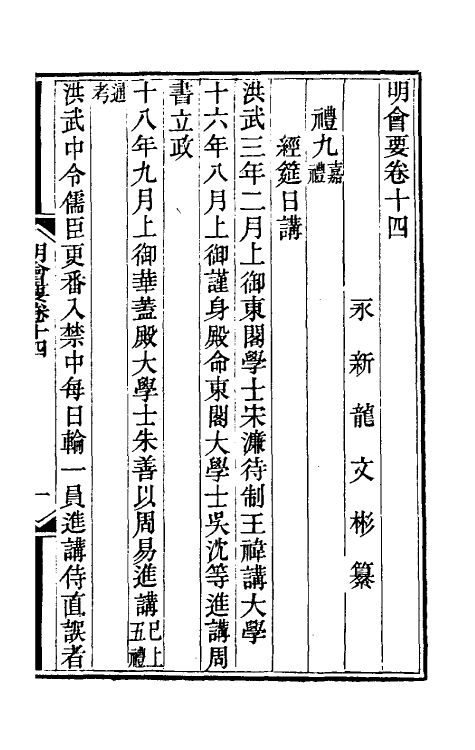 明會要卷十四
永新龍文彬纂
禮九嘉禮
經筵日講
洪武三年二月上御東閣學士宋濂待制王禕講大學
十六年八月上御謹身殿命東閣大學士吳沈等進講周
書立政
十八年九月上御華蓋殿大學士朱善以周易進講巳上五禮
通考
洪武中令儒臣更番入禁中每日輪一員進講侍直誤者
明會要卷十四
一